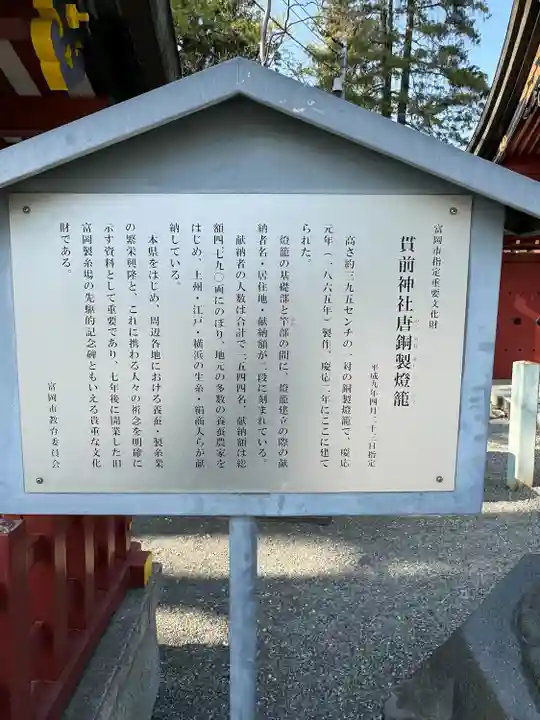 富岡市指定重要文化財
貫前神社唐銅製燈籠
平成九年四月二十三日指定
高さ約三九五センチの一対の銅製燈籠で、慶応
元年（一八六五年）製作、慶応二年にここに建て
られた。
燈籠の基礎部と竿部の間に、燈籠建立の際の献
納者名・居住地・献納額が二段に刻まれている。
献納者の人数は合計で一五四四名、献納額は総
額四、七九〇両にのぼり、地元の多数の養蚕農家を
はじめ、上州・江戸・横浜の生糸・絹商人らが献
納している。
本県をはじめ、周辺各地における養蚕・製糸業
の繁栄興隆と、これに携わる人々の祈念を明確に
示す資料として重要であり、七年後に開業した旧
富岡製糸場の先駆的記念碑ともいえる貴重な文化
財である。
富岡市教育委員会